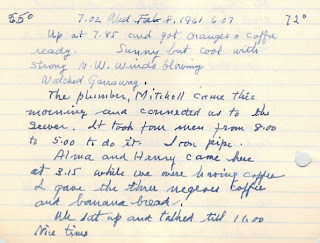 55° 7.02 Wed. Feb. 8, 1961 6.07 72°
Up at 7.45 and got oranges & coffee
ready. Sunny but cool with
strong N.W. Winds blowing
Watched Garraway.
The plumber, Mitchell came this
morning and connected us to the
Sewer. It took four men from 8:00
to 5:00 to do it. Iron pipe.
Alma and Henry came here
at 3.15 while we were having coffee
I gave the three negroes coffee
and banana bread.
We sat up and talked till 11.00
Nice time